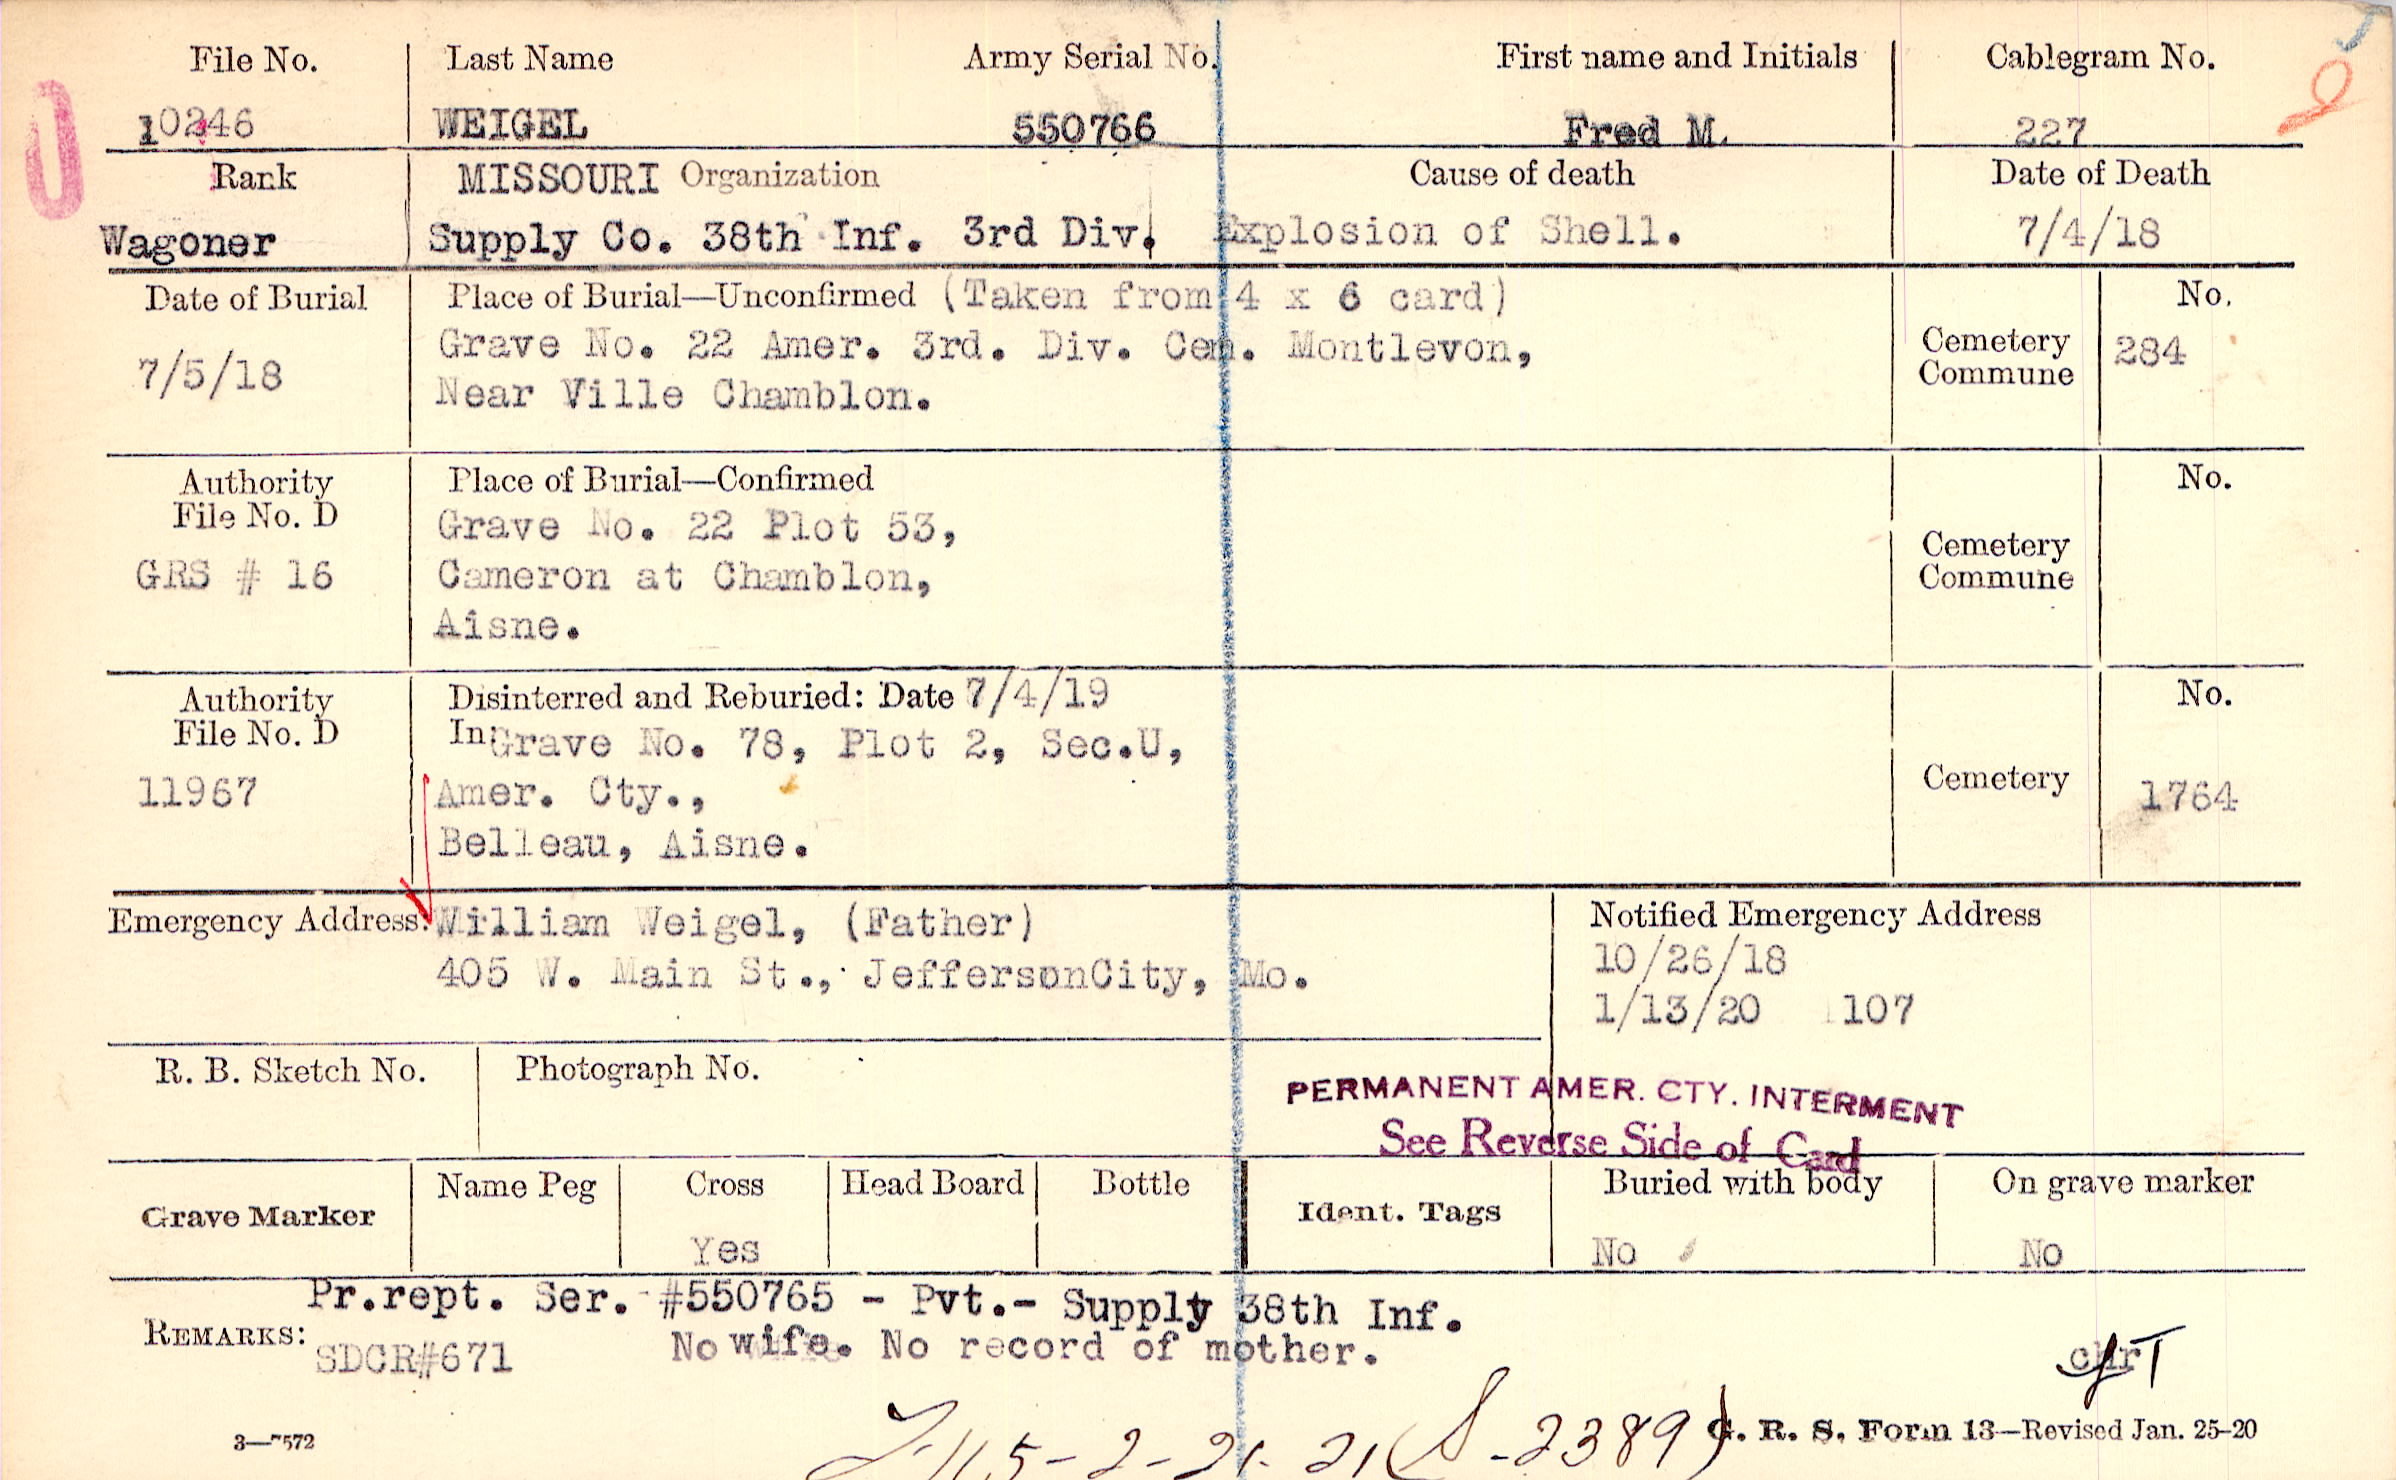 File No. Last Name Army Serial No. First name and Initials Cablegram No.
10246 WEIGEL 550766 Fred M. 227
Rank MISSOURI Organization Cause of death Date of Death
Wagoner Supply Co. 38th Inf. 3rd Div. Explosion of Shell. 7/4/18
Date of Burial Place of Burial—Unconfirmed (Taken from 4 x 6 card) No.
7/5/18 Grave No. 22 Amer. 3rd. Div. Cem. Montlevon, Cemetery Commune 284
Near Ville Chamblon.
Authority File No. D Place of Burial—Confirmed No.
GRS # 16 Grave No. 22 Plot 53,
Cameron at Chamblon, Cemetery Commune
Aisne.
Authority File No. D Disinterred and Reburied: Date 7/4/19 No.
In Grave No. 78, Plot 2, Sec.U,
11967 Amer. Cty., Cemetery 1764
Belleau, Aisne.
Emergency Address: William Weigel, (Father) Notified Emergency Address
405 W. Main St., JeffersonCity, Mo. 10/26/18
1/13/20 107
R. B. Sketch No. Photograph No.
PERMANENT AMER. CTY. INTERMENT
See Reverse Side of Card
Grave Marker Name Peg Cross Head Board Bottle Ident. Tags Buried with body On grave marker
Yes No No
Pr.rept. Ser. #550765 - Pvt.- Supply 38th Inf.
REMARKS: SDCR#671 No wife. No record of mother.
chr
115-2-21-21 (S-2389)
3—7572 G. R. S. Form 13—Revised Jan. 25-20